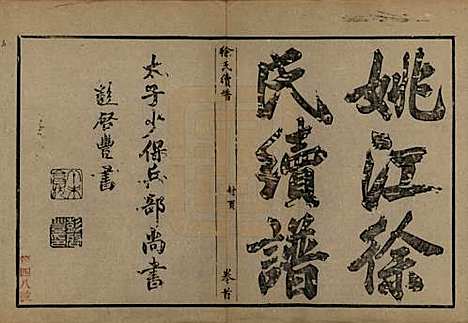 姚江徐
氏續譜
徐氏續譜
卷首
太子少保兵部尚書
彭啓豐書